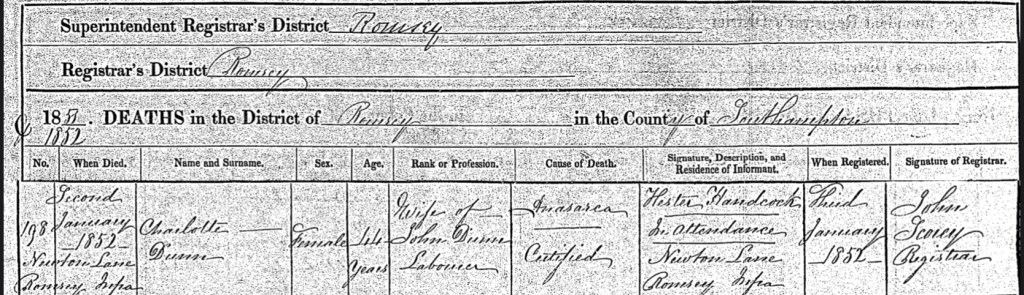 Superintendent Registrar's District Romsey
Registrar's District Romsey
1851. DEATHS in the District of Romsey in the County of Southampton
& 1852
No. When Died. Name and Surname. Sex. Age. Rank or Profession. Cause of Death. Signature, Description, and Residence of Informant. When Registered. Signature of Registrar.
198
Second
January
1852
Newton Lane
Romsey Infra
Charlotte
Dunn
Female
44
Years
Wife of
John Dunn
Labourer
Anasarca
Certified
Hester Handcock
In attendance
Newton Lane
Romsey Infra
Third
January
1852
John
Scorey
Registrar